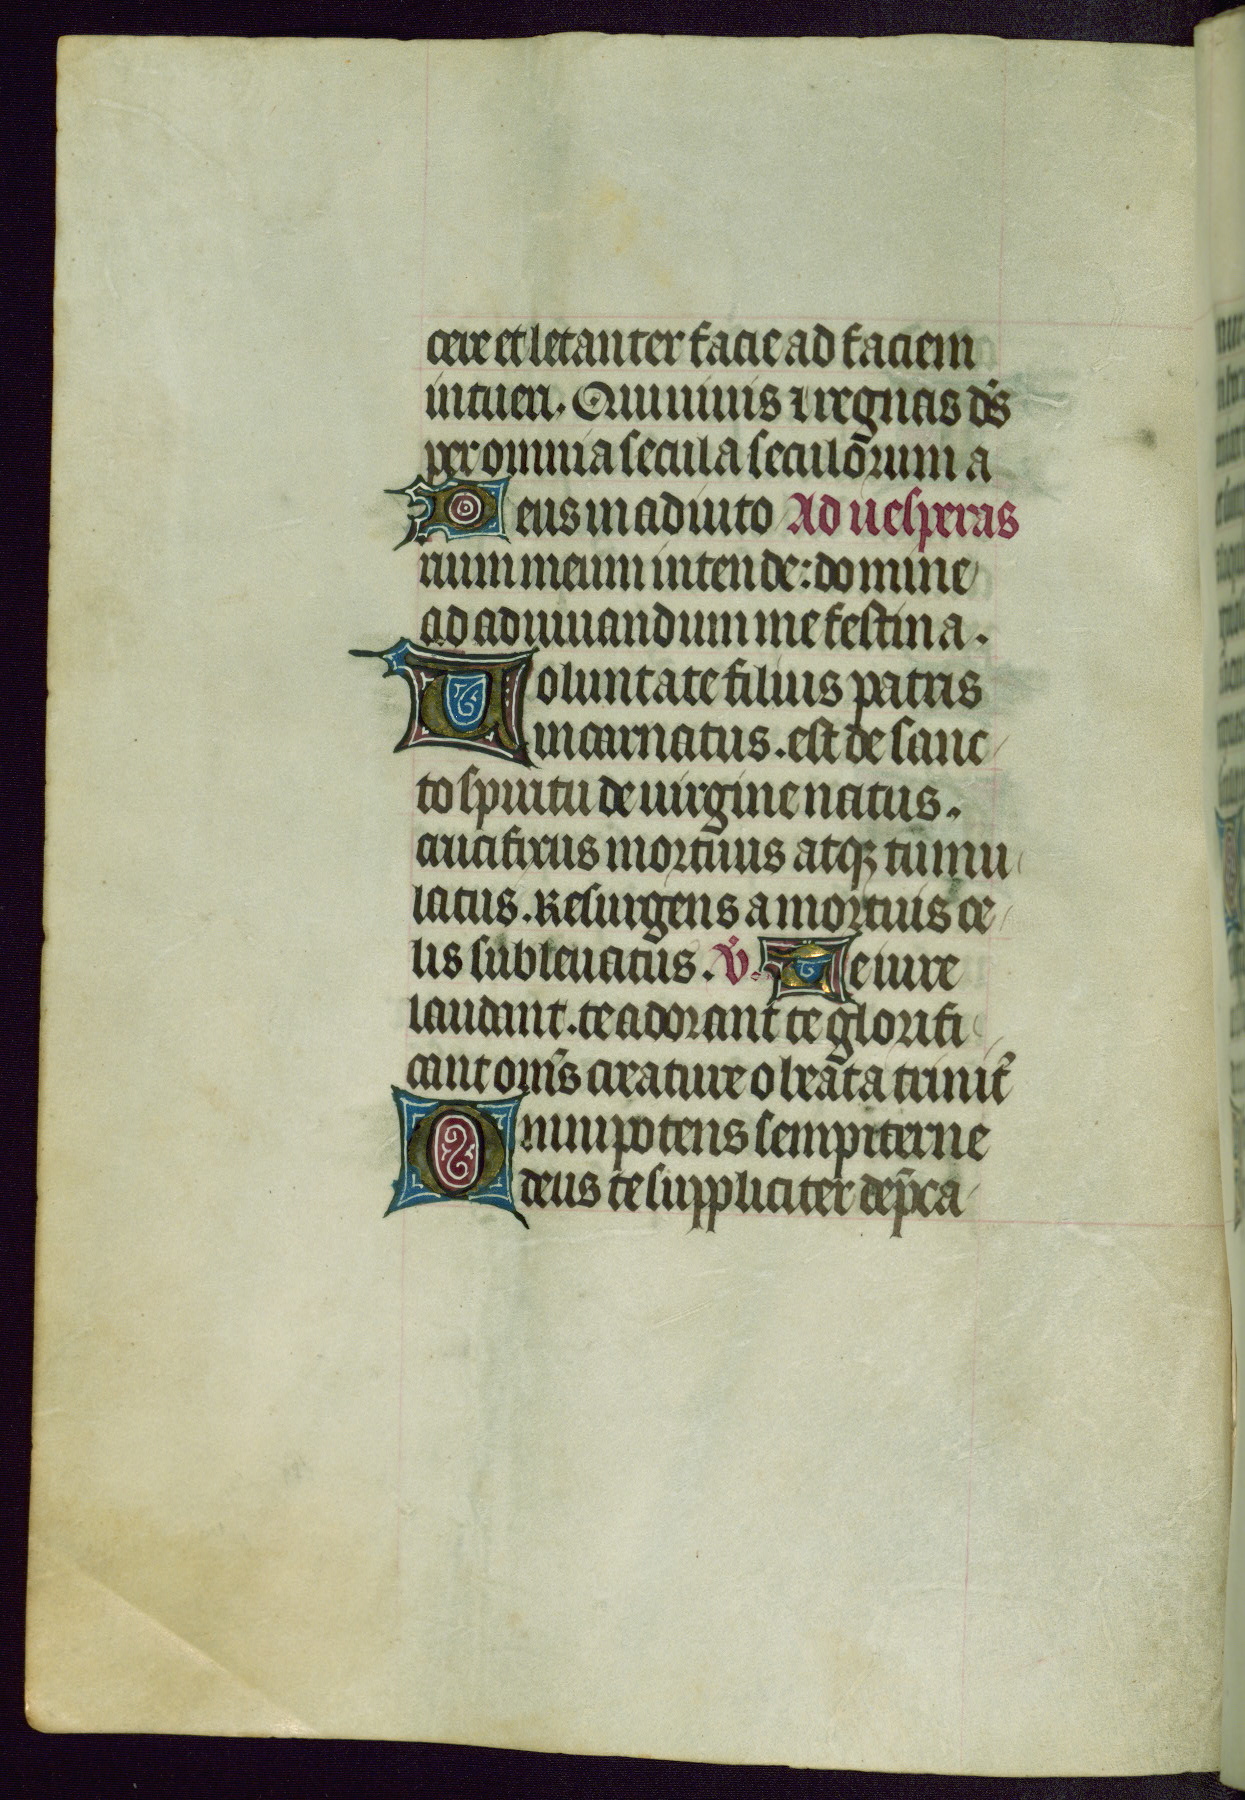 cere et letanter facie ad faciem
intueri. Qui uiuis ⁊ regnas dn̄s
per omnia secula seculōrum a
Deus in adiuto Ad uesperas
rium meum intende: domine
ad adiuuandum me festina.
Uoluntate filius patris
incarnatus. est de sanc
to spiritu de uirgine natus.
crucifixus mortuus atqꝫ tumu
latus. Resurgens a mortuis ce
lis subleuatus. V̇. Te iure
laudant. te adorant te glorifi
cant om̄s creature o beāta trinit᷑
Omnipotens sempiterne
deus te suppliciter dep̄ca